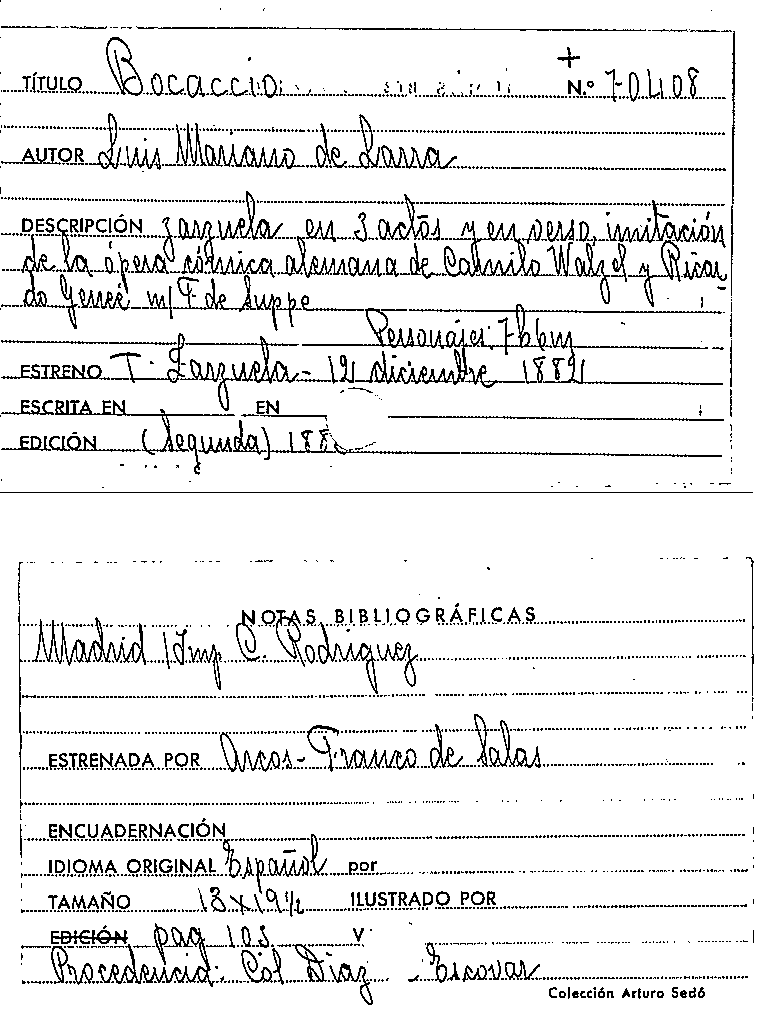 +
TÍTULO Bocaccio N.º 70408
AUTOR Luis Mariano de Larra
DESCRIPCIÓN zarzuela en 3 actos y en verso, imitación
de la ópera cómica alemana de Camilo Walzel y Ricar-
do Geneé m/ F. de Suppe
Personajes: 7h 6m
ESTRENO T. Zarzuela - 12 diciembre 1882
ESCRITA EN EN
EDICIÓN (Segunda) 188
NOTAS BIBLIOGRÁFICAS
Madrid / Imp C. Rodriguez
ESTRENADA POR Arcos - Franco de Salas
ENCUADERNACIÓN
IDIOMA ORIGINAL Español por
TAMAÑO 13 x 19 ½ ILUSTRADO POR
EDICIÓN pag 103 V
Procedencia: Col Diaz - Escovar
Colección Arturo Sedó